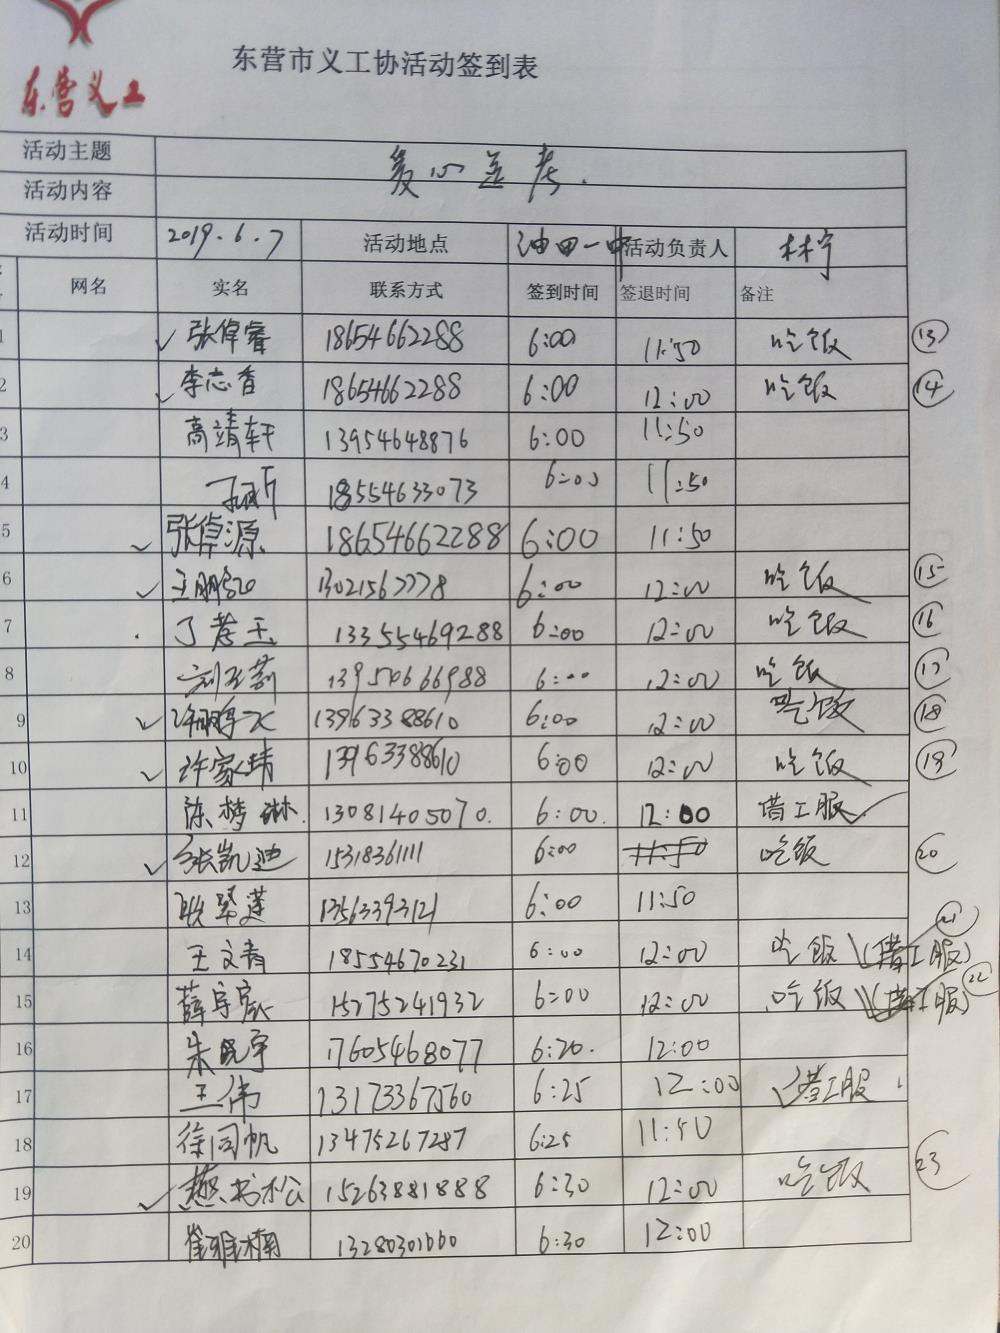 东营义工
东营市义工协活动签到表
活动主题 爱心送考.
活动内容
活动时间 2019.6.7 活动地点 油田一中 活动负责人 林宁
网名 实名 联系方式 签到时间 签退时间 备注
1 ✓ 张倬睿 18654662288 6:00 11:50 吃饭 ⑬
2 ✓ 李志香 18654662288 6:00 12:00 吃饭 ⑭
3 高靖轩 13954648876 6:00 11:50
4 18554633073 6:00 11:50
5 ✓ 张倬源 18654662288 6:00 11:50
6 ✓ 王鹏 13021567778 6:00 12:00 吃饭 ⑮
7 丁孝玉 13355469288 6:00 12:00 吃饭 ⑯
8 刘玉莉 13950666988 6:00 12:00 吃饭 ⑰
9 ✓ 许鹏 13963388610 6:00 12:00 吃饭 ⑱
10 ✓ 许家玮 13963388610 6:00 12:00 吃饭 ⑲
11 陈梦琳. 13081405070. 6:00. 12:00 借工服 ✓
12 ✓ 张凯迪 15318361111 6:00 11:50 吃饭 ⑳
13 耿翠莲 13563393121 6:00 11:50
14 王文青 18554670231 6:00 12:00 吃饭 (借工服) ㉑
15 薛宇宸 15275241932 6:00 12:00 吃饭 (借工服) ㉒
16 朱晓宇 17605468077 6:20. 12:00
17 王伟 13173367560 6:25 12:00 ✓借工服
18 徐同帆 13475267287 6:25 11:50
19 ✓ 燕书松 15263881888 6:30 12:00 吃饭 ㉓
20 崔雅楠 13280301660 6:30 12:00